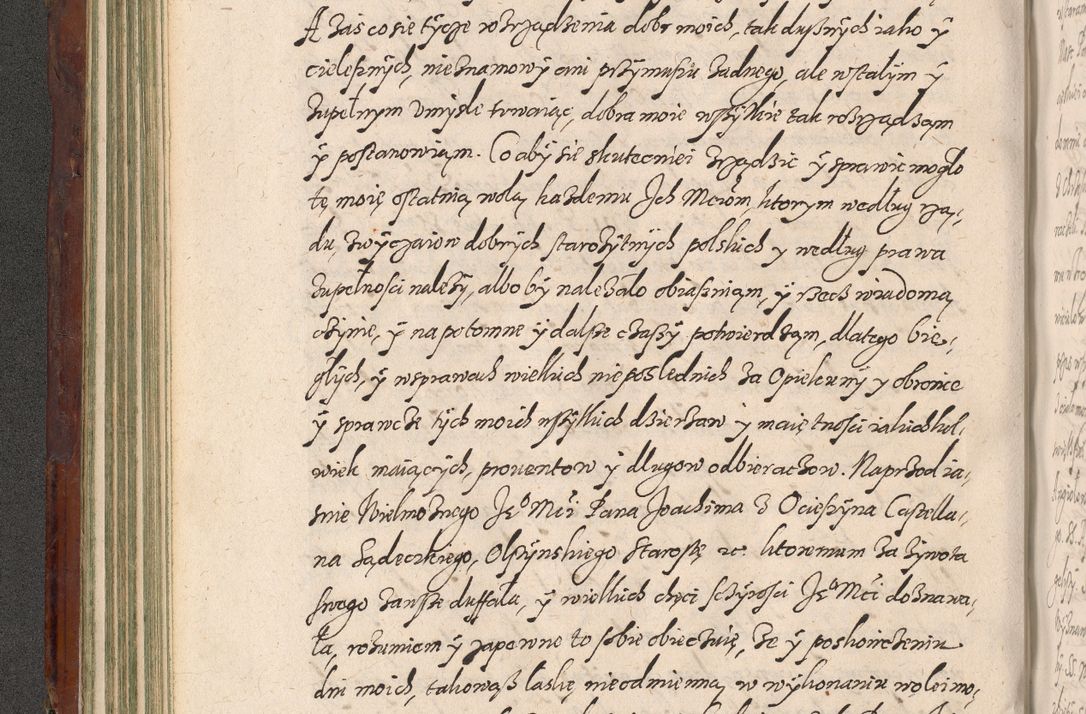 A zas co sie tycze rozrządzenia dobr moich, tak dusznych iako ÿ
cielesznych, nie znamowÿ ani przÿmuszu zadnego, ale w stałÿm ÿ
zupełnym vmysle trwaiąc, dobra moie wszÿtkie tak rozrządzam
ÿ postanowiąm. Co abÿ sie skutecniei zrządzic ÿ sprawic mogło
tę moię ostatnią wolą kazdemu Jch Mciom, ktorym według rzą-
du, zwÿczaiow dobrÿch starozÿtnÿch polskich y według prawa
zupełnosci nalezÿ, albo bÿ nalezało obiaszniąm, ÿ rzecz wiadomą
czÿnię, ÿ na potomne ÿ dalsze czassÿ potwierdzam, dlatego bie-
głÿch, ÿ w sprawach wielkich nieposlednich za Opiekunÿ y obronce
ÿ sprawce tÿch moich wszÿtkich dzierzaw ÿ maiętnosci iakichkol-
wiek maiącÿch, prouentow ÿ dlugow odbieraczow. Naprzod ia-
snie Wielmoznego Jeo Mci Pana Joachima z Ocieszÿna Castella-
na Sądeczkiego, Olsztÿnskiego Starostę etc. ktoremum za zÿwota
swego zawsze duffała, ÿ wielkich chęci sczÿrosci Jeo Mci doznawa-
ła, rozumiem ÿ zapewne to sobie obieczuię, ze ÿ po skonczeniu
dni moich, takowąsz łaskę nieodmienną w wÿkonaniu woleimo-